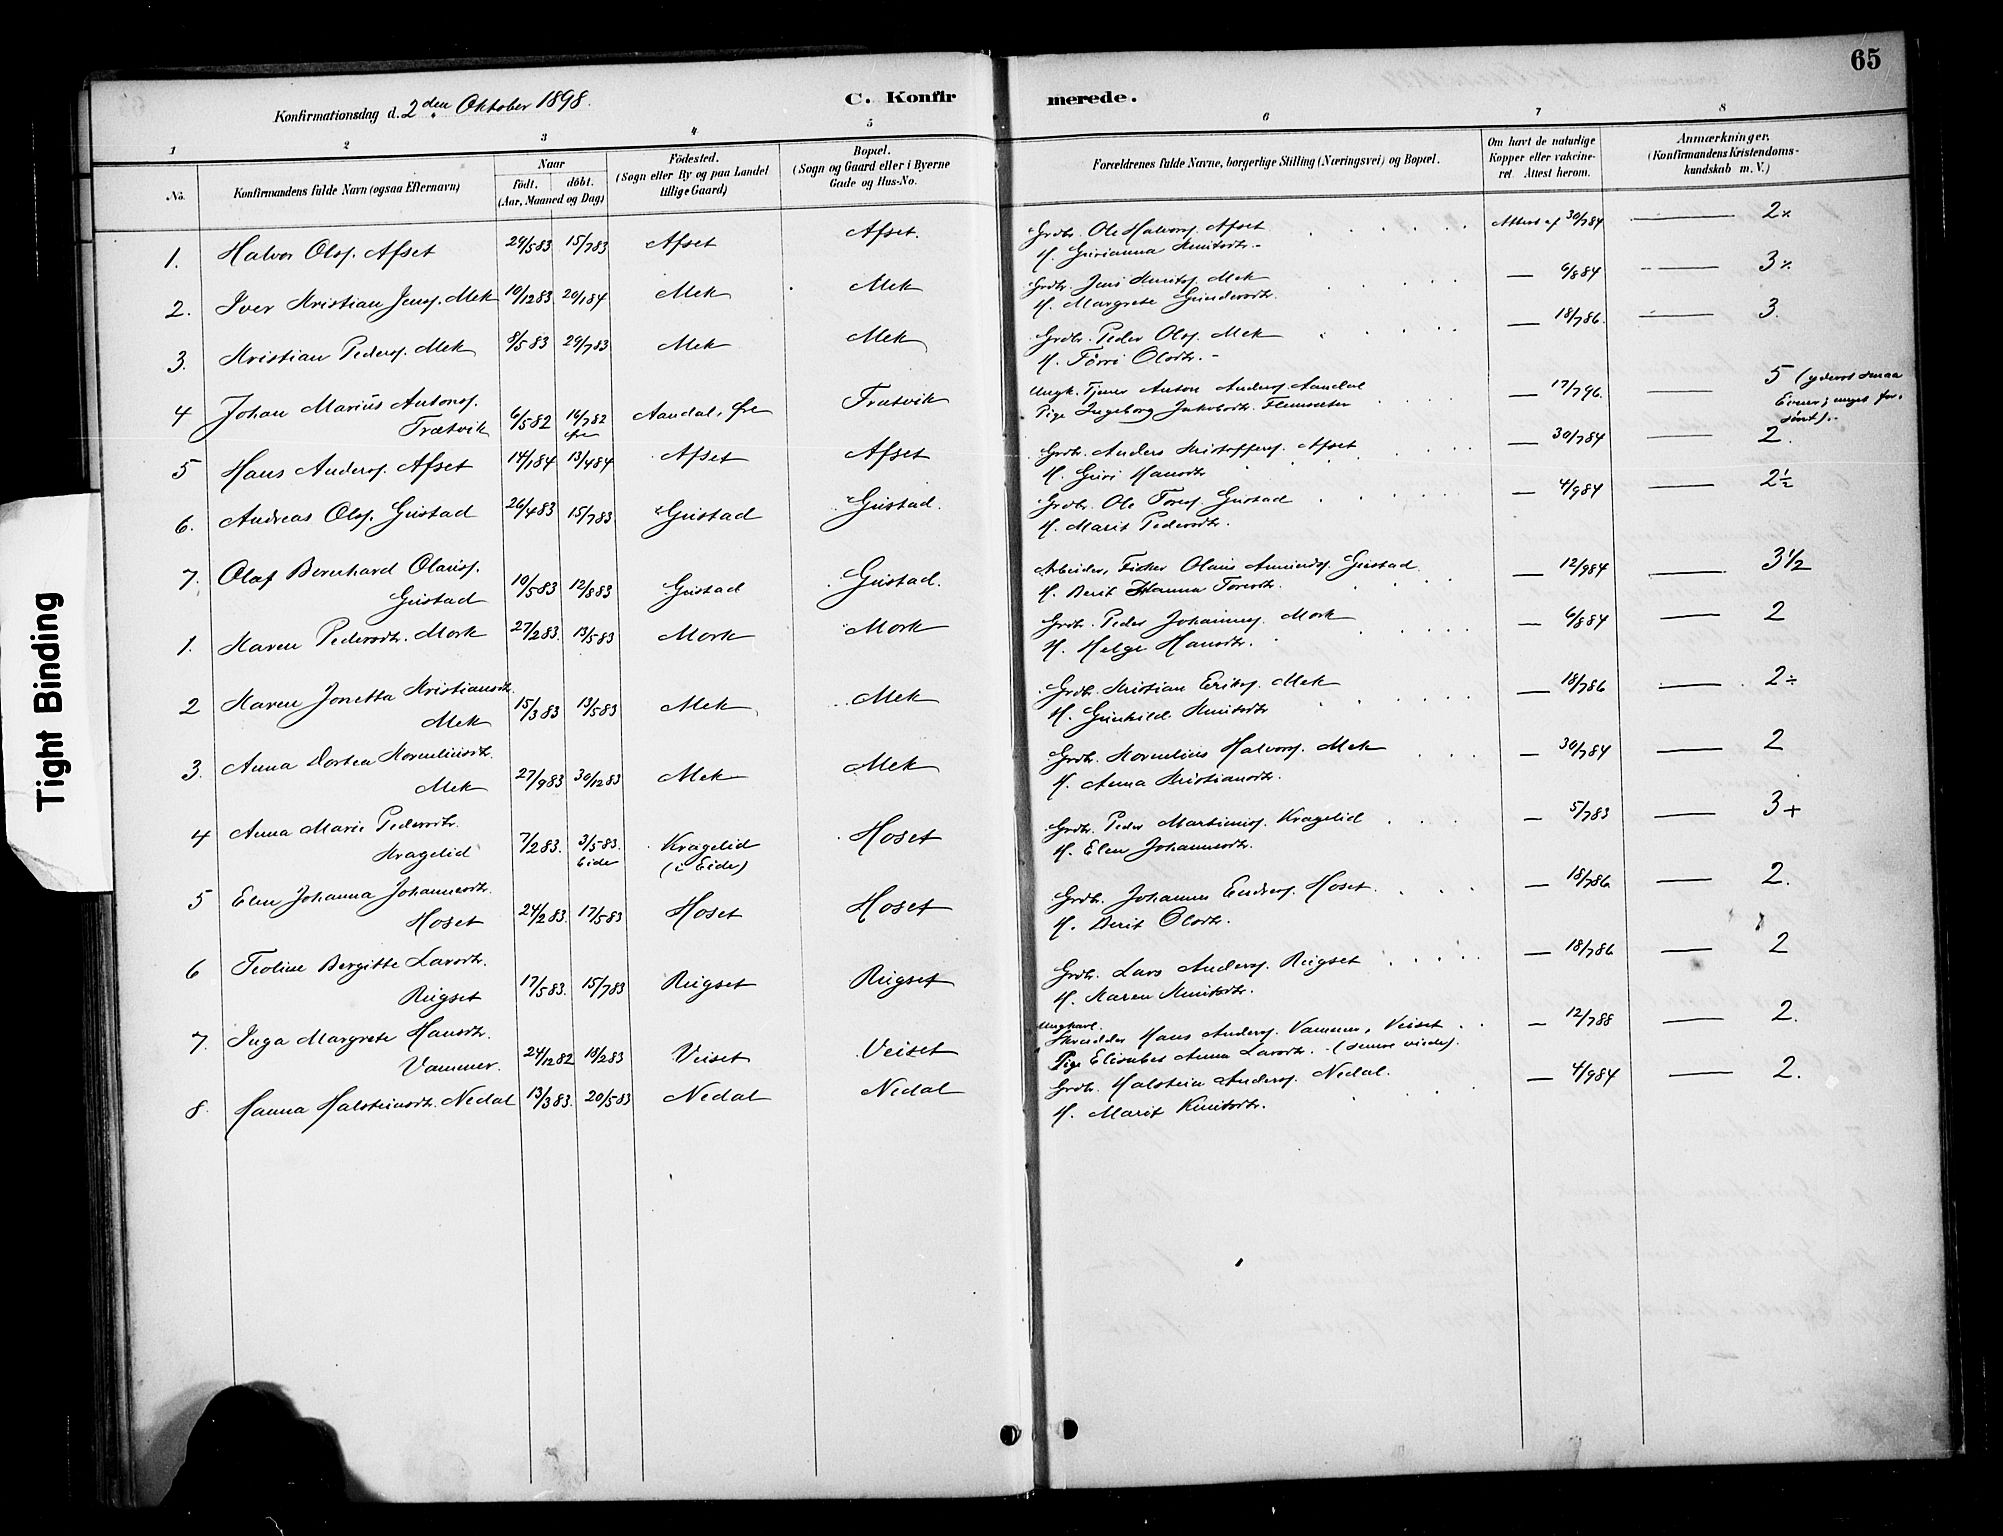 65
Konfirmationsdag d. 2den Oktober 1898.
C. Konfirmerede.
1 2 3 4 5 6 7 8
No.
Konfirmandens fulde Navn (ogsaa Efternavn)
Naar
født. døbt.
(Aar, Maaned og Dag)
Fødested.
(Sogn eller By og paa Landet
tillige Gaard)
Bopæl.
(Sogn og Gaard eller i Byerne
Gade og Hus-No.
Forældrenes fulde Navne, borgerlige Stilling (Næringsvei) og Bopæl.
Om havt de naturlige
Kopper eller vakcine-
ret. Attest herom.
Anmærkninger.
(Konfirmandens Kristendoms-
kundskab m. V.)
1. Halvor Olsf. Afset 29/5 83 15/7 83 Afset Afset. Grdbr. Ole Halvorsf. Afset Attest af 30/7 84 2
H. Gurianna Knutsdtr.
2. Iver Kristian Jensf. Mek 10/12 83 20/1 84 Mek Mek Grdbr. Jens Knutsf. Mek 6/8 84 3
H. Margrete Gundersdtr.
3. Kristian Pedersf. Mek 8/5 83 29/7 83 Mek Mek Grdbr. Peder Olsf. Mek 18/7 86. 3.
H. Tørri Olsdtr.
4 Johan Marius Antonsf. Ungk. Tjener Anton Andersf. Aandal
Trætvik 6/5 82 16/7 82 Øre Aandal, Øre Trætvik 17/7 96. 5 (yderst smaa
Evner; meget for-
sømt).
Pige Ingeborg Jakobsdtr. Flemsæter
5 Hans Andersf. Afset 14/1 84 13/4 84 Afset Afset Grdbr. Anders Kristoffersf. Afset 30/7 84 2.
H. Guri Hansdtr
6. Andreas Olsf. Gustad 26/4 83 15/7 83 Gustad Gustad. Grdbr. Ole Toresf. Gustad 4/9 84 2½
H. Marit Pedersdtr.
7. Olaf Bernhard Olausf. Arbeider, Fisker Olaus Amundsf. Gustad
Gustad 10/5 83 12/8 83 Gustad Gustad. 12/9 84 3½
H. Berit Hanna Toresdtr.
1. Karen Pedersdtr. Mork 27/2 83. 13/5 83 Mork Mork Grdbr. Peder Johannesf. Mork 6/8 84 2
H. Helge Hansdtr.
2 Karen Jonetta Kristiansdtr. Grdbr. Kristian Eriksf. Mek
Mek 15/3 83 13/5 83 Mek Mek 18/7 86 2÷
H. Gunhild Knutsdtr
3. Anna Dortea Korneliusdtr. Grdbr. Kornelius Halvorsf. Mek
Mek 27/9 83 30/12 83 Mek Mek 30/7 84 2
H. Anna Kristiansdtr.
4 Anna Marie Pedersdtr. Grdbr. Peder Martinusf. Kragelid
Kragelid 7/2 83. 3/5 83. Eide Kragelid (i Eide) Hoset 5/7 83 3+
H. Elen Johannesdtr.
5 Elen Johanna Johannesdtr. Grdbr. Johannes Endresf. Hoset.
Hoset 24/2 83. 17/5 83 Hoset Hoset 18/7 86 2.
H. Berit Olsdtr.
6 Teoline Bergitte Larsdtr. Grdbr. Lars Andersf. Rugset
Rugset 17/5 83. 15/7 83 Rugset Rugset 18/7 86 2
H. Karen Knutsdtr.
7. Inga Margrete Hansdtr. Ungkarl.
Skrædder Hans Andersf. Vammer, Veiset
Vammer. 24/12 82 18/2 83 Veiset Veiset 12/7 88 2.
Pige Elisabet Anna Larsdtr. (senere viede).
8. Hanna Halsteinsdtr. Nedal 13/3 83. 20/5 83 Nedal Nedal Grdbr. Halstein Andersf. Nedal. 4/9 84 2.
H. Marit Knutsdtr.
Tight Binding